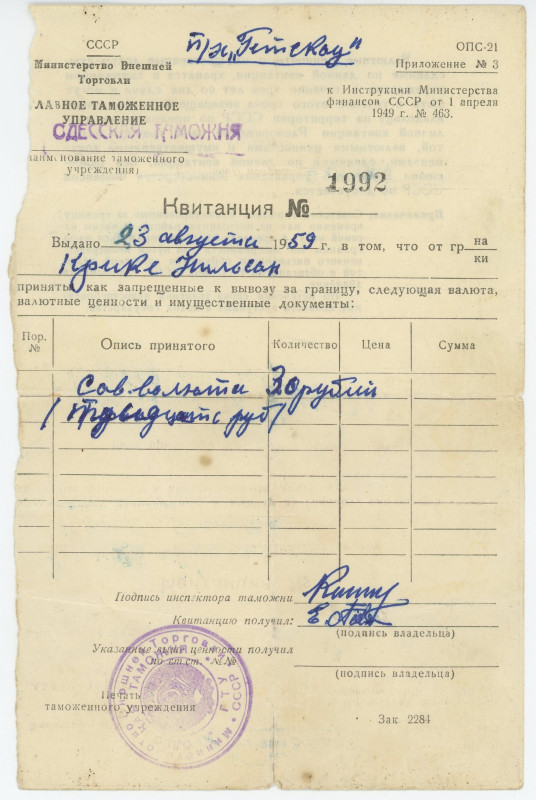 СССР
Министерство Внешней
Торговли
ЛАВНОЕ ТАМОЖЕННОЕ
УПРАВЛЕНИЕ
ОДЕССКАЯ ТАМОЖНЯ
наименование таможенного
учреждения)
п/х „Гетскоу"
ОПС-21
Приложение № 3
к Инструкции Министерства
финансов СССР от 1 апреля
1949 г. № 463.
1992
Квитанция №
Выдано 23 августа 1959 г. в том, что от гр-на
ки
Крике Нильсан
приняты как запрещенные к вывозу за границу, следующая валюта,
валютные ценности и имущественные документы:
Пор. № Опись принятого Количество Цена Сумма
Сов. валюта 30 рублей
(тридцать руб)
Подпись инспектора таможни
Квитанцию получил:
(подпись владельца)
Указанные выше ценности получил
по кт.ст. №№
(подпись владельца)
Печать
таможенного учреждения
Министерство Внешней Торговли СССР ГТУ
ТАМОЖНЯ
Зак 2284